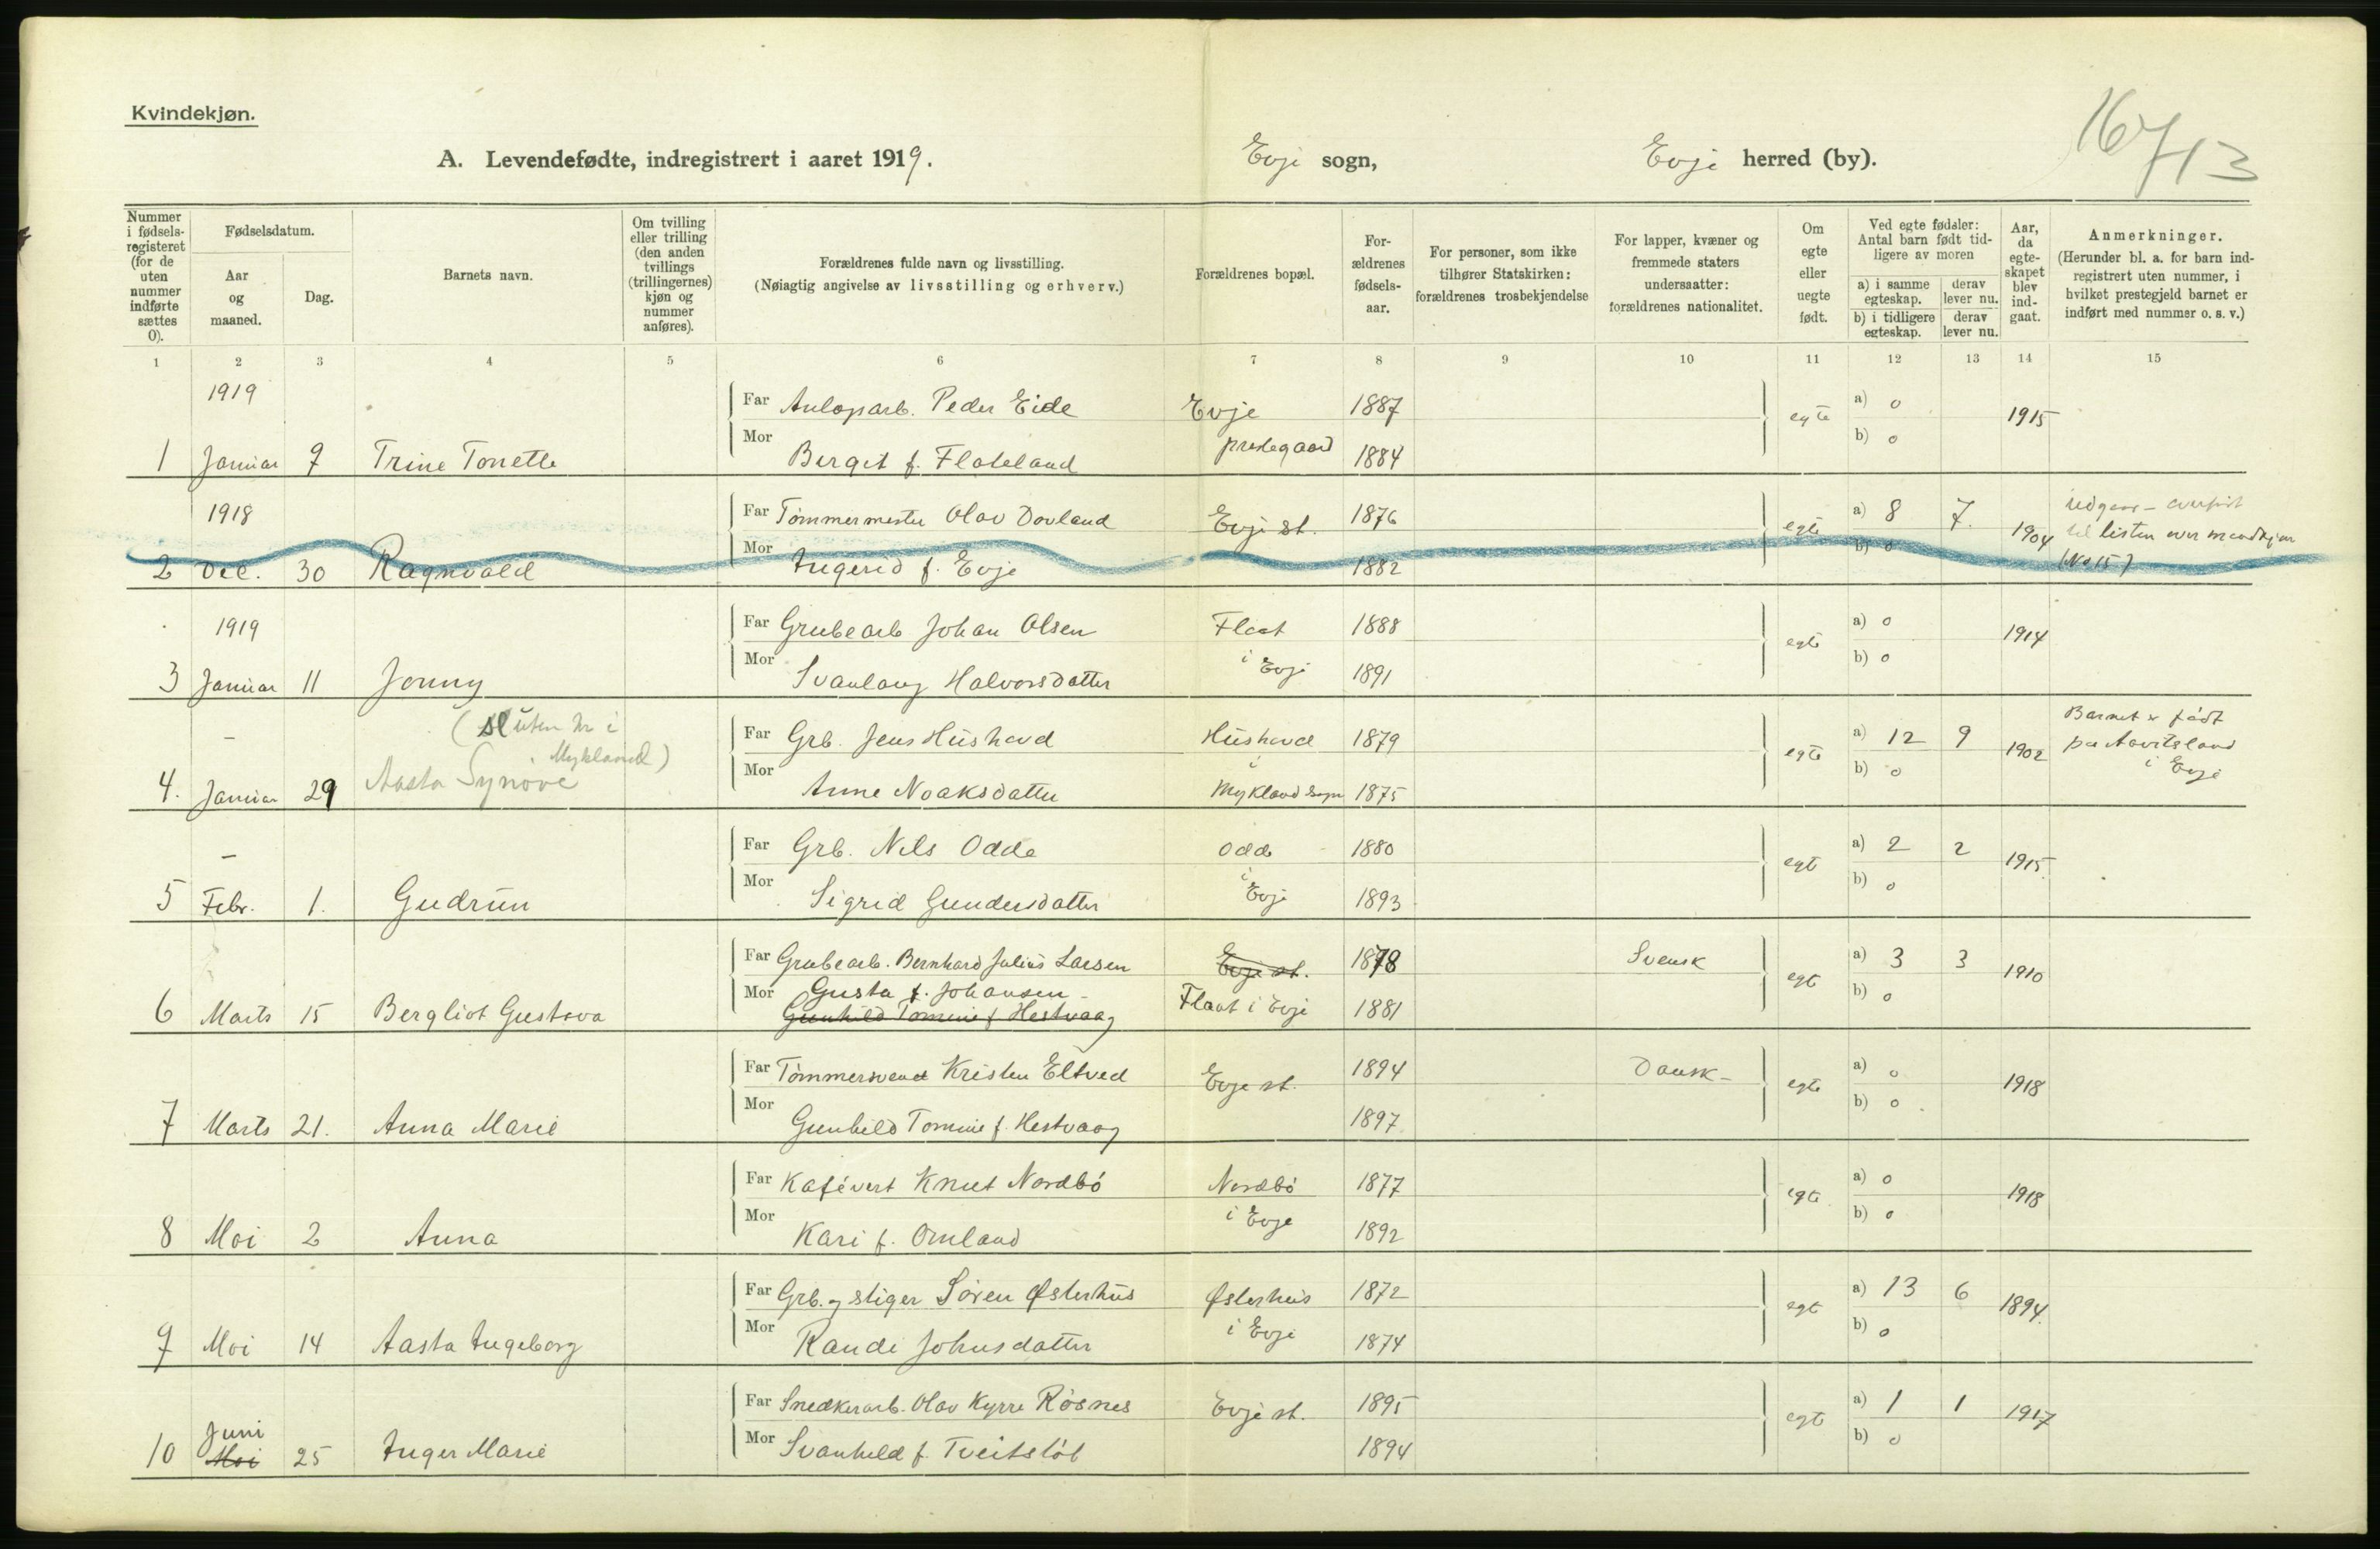 Kvindekjøn.
16713
A. Levendefødte, indregistrert i aaret 1919. Evje sogn, Evje herred (by).
Nummer i fødselsregisteret (for de uten nummer indførte sættes 0).
Fødselsdatum.
Aar og maaned.
Dag.
Barnets navn.
Om tvilling eller trilling (den anden tvillings (trillingernes) kjøn og nummer anføres).
Forældrenes fulde navn og livsstilling.
(Nøiagtig angivelse av livsstilling og erhverv.)
Forældrenes bopæl.
Forældrenes fødselsaar.
For personer, som ikke tilhører Statskirken: forældrenes trosbekjendelse
For lapper, kvæner og fremmede staters undersaatter: forældrenes nationalitet.
Om egte eller uegte født.
Ved egte fødsler: Antal barn født tidligere av moren
a) i samme egteskap.
derav lever nu.
b) i tidligere egteskap.
derav lever nu.
Aar, da egteskapet blev indgaat.
Anmerkninger.
(Herunder bl. a. for barn indregistrert uten nummer, i hvilket prestegjeld barnet er indført med nummer o. s. v.)
1 2 3 4 5 6 7 8 9 10 11 12 13 14 15
1919 Far Anlegsarb. Peder Eide Evje 1887 egte a) 0 1915
1 Januar 9 Trine Tonette Mor Berget f. Flateland prestegaard 1884 b) 0
1918 Far Tømmermester Olav Dovland Evje st. 1876 egte a) 8 7. 1904 utgaar - overført til listen over mandkjøn (No 15)
2 Dec. 30 Ragnvald Mor Ingerid f. Evje 1882 b) 0
1919 Far Grubearb Johan Olsen Flaat 1888 egte a) 0 1914
3 Januar 11 Jonny Mor Svanlaug Halvorsdatter i Evje 1891 b) 0
(se uten nr i Mykland)
– Far Grb. Jens Hushovd Hushovd 1879 egte a) 12 9 1902 Barnet er født paa Aavitsland i Evje
4. Januar 29 Aasta Synøve Mor Anne Noaksdatter i Mykland sogn 1875 b) 0
– Far Grb. Nils Odde Odde 1880 egte a) 2 2 1915
5 Febr. 1. Gudrun Mor Sigrid Gundersdatter i Evje 1893 b) 0
Far Grubearb. Bernhard Julius Larsen Evje st. 1878 Svensk egte a) 3 3 1910
Mor Gusta f. Johansen
6 Marts 15 Bergliot Gustava Gunhild Tomine f Hestvaag Flaat i Evje 1881 b) 0
Far Tømmersvend Kristen Eltved Evje st. 1894 Dansk– egte a) 0 1918
7 Marts 21. Anna Marie Mor Gunhild Tomine f. Hestvaag 1897 b) 0
Far Kafévert Knut Nordbö Nordbö 1877 egte a) 0 1918
8 Mai 2 Anna Mor Kari f. Omland i Evje 1892 b) 0
Far Grb. og stiger Søren Østerhus Østerhus 1872 egte a) 13 6 1894.
9 Mai 14 Aasta Ingeborg Mor Randi Johnsdatter i Evje 1874 b) 0
Far Snedkerarb. Olav Kyrre Røsnes Evje st. 1895 egte a) 1 1 1917
Juni
10 Mai 25 Inger Marie Mor Svanhild f. Tveitsløt 1894 b) 0